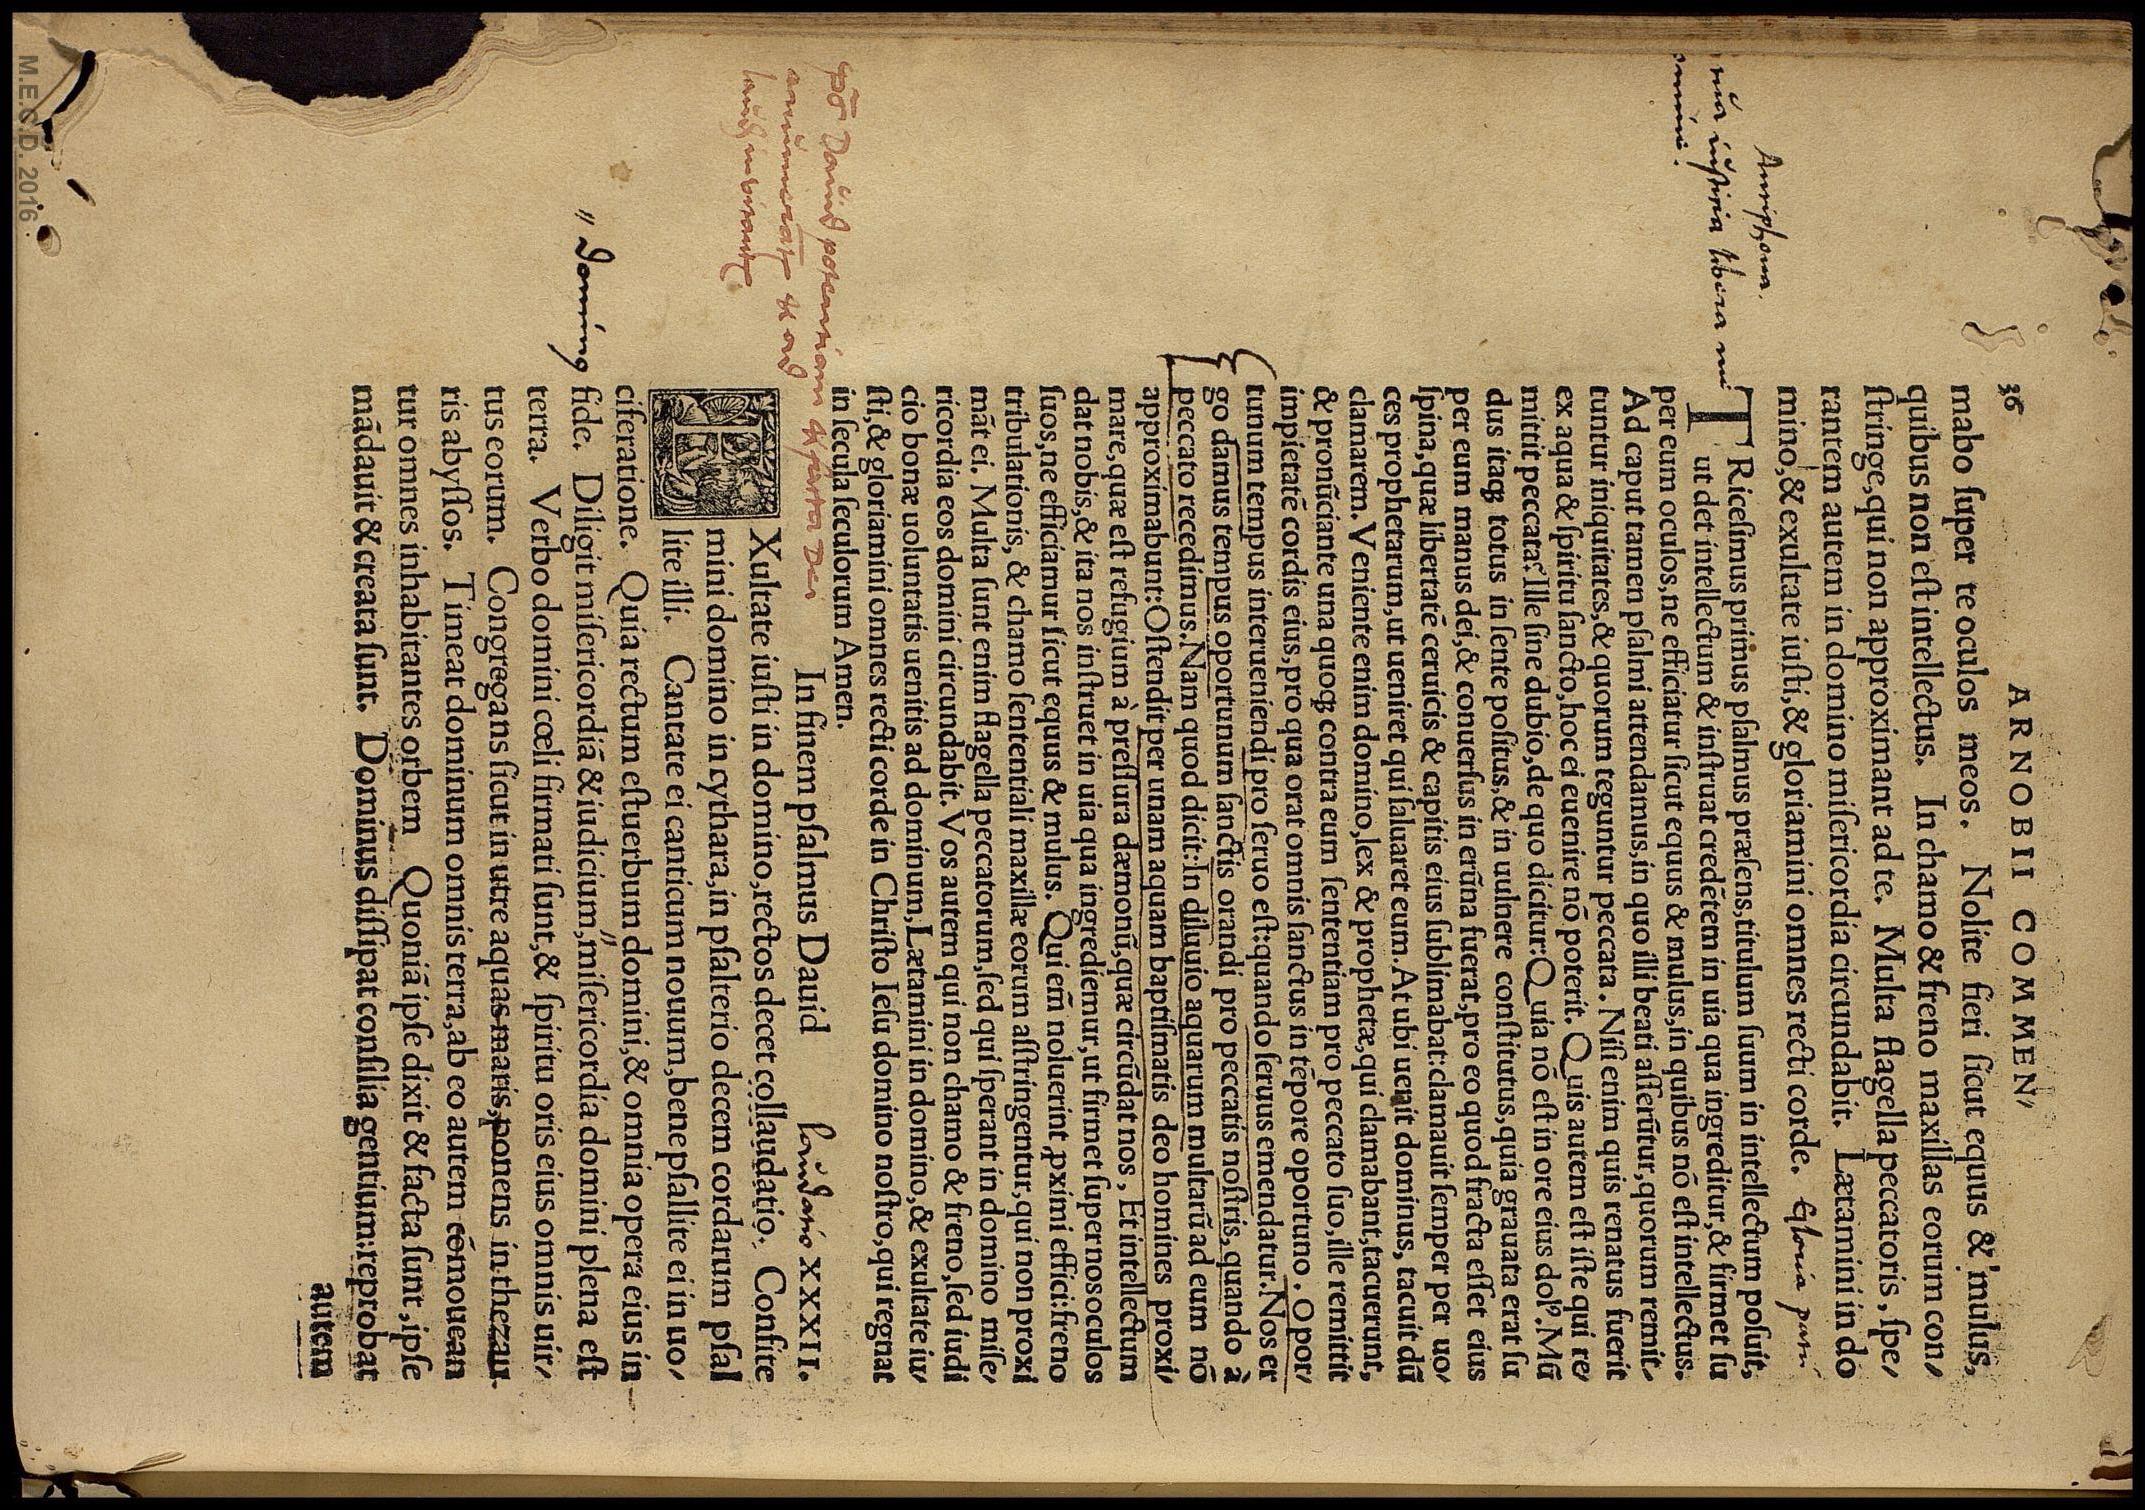 36
ARNOBII COMMEN,
mabo ſuper te oculos meos. Nolite fieri ſicut equus & mulus,
quibus non eſt intellectus. In chamo & freno maxillas eorum con,
ſtringe, qui non approximant ad te. Multa flagella peccatoris, ſpe,
rantem autem in domino miſericordia circundabit. Lætamini in do
mino, & exultate iuſti, & gloriamini omnes recti corde. Gloria patri
Antiphona.
iuſticia libera me
TRiceſimus primus pſalmus præſens, titulum ſuum in intellectum poſuit,
ut det intellectum & inſtruat credētem in uia qua ingreditur, & firmet ſu
per eum oculos, ne efficiatur ſicut equus & mulus, in quibus nō eſt intellectus.
Ad caput tamen pſalmi attendamus, in quo illi beati aſſerūtur, quorum remit,
tuntur iniquitates, & quorum teguntur peccata. Niſi enim quis renatus fuerit
ex aqua & ſpiritu ſancto, hoc ei euenire nō poterit. Quis autem eſt iſte qui re,
mittit peccata? Ille ſine dubio, de quo dicitur: Quia nō eſt in ore eius dolꝰ. Mū
dus itaqꝫ totus in ſente poſitus, & in uulnere conſtitutus, quia grauata erat ſu
per eum manus dei, & conuerſus in erūna fuerat, pro eo quod fracta eſſet eius
ſpina, quæ libertatē ceruicis & capitis eius ſublimabat: clamauit ſemper per uo,
ces prophetarum, ut ueniret qui ſaluaret eum. At ubi uenit dominus, tacuit dū
clamarem. Veniente enim domino, lex & prophetæ, qui clamabant, tacuerunt,
& pronūciante una quoqꝫ contra eum ſententiam pro peccato ſuo, ille remittit
impietatē cordis eius, pro qua orat omnis ſanctus in tēpore oportuno. Opor,
tunum tempus interueniendi pro ſeruo eſt: quando ſeruus emendatur. Nos er
go damus tempus oportunum ſanctis orandi pro peccatis noſtris, quando à
peccato recedimus. Nam quod dicit: In diluuio aquarum multarū ad eum nō
approximabunt: Oſtendit per unam aquam baptiſmatis deo homines proxi,
mare, quæ eſt refugium à preſſura dæmonū, quæ circūdat nos, Et intellectum
dat nobis, & ita nos inſtruet in uia qua ingrediemur, ut firmet ſuper nos oculos
ſuos, ne efficiamur ſicut equus & mulus. Qui em̄ noluerint ꝓximi effici: freno
tribulationis, & chamo ſententiali maxillæ eorum aſſtringentur, qui non proxi
māt ei. Multa ſunt enim flagella peccatorum, ſed qui ſperant in domino miſe,
ricordia eos domini circundabit. Vos autem qui non chamo & freno, ſed iudi
cio bonæ uoluntatis uenitis ad dominum, Lætamini in domino, & exultate iu,
ſti, & gloriamini omnes recti corde in Chriſto Ieſu domino noſtro, qui regnat
in ſecula ſeculorum Amen.
In finem pſalmus Dauid laudatio XXXII.
EXultate iuſti in domino, rectos decet collaudatio. Confite
mini domino in cythara, in pſalterio decem cordarum pſal
lite illi. Cantate ei canticum nouum, bene pſallite ei in uo,
ciferatione. Quia rectum eſt uerbum domini, & omnia opera eius in
" dominꝰ
fide. Diligit miſericordiā & iudicium, " miſericordia domini plena eſt
terra. Verbo domini cœli firmati ſunt, & ſpiritu oris eius omnis uir,
tus eorum. Congregans ſicut in utre aquas maris, ponens in thezau,
ris abyſſos. Timeat dominum omnis terra, ab eo autem cōmouean
tur omnes inhabitantes orbem Quoniā ipſe dixit & facta ſunt, ipſe
mādauit & creata ſunt. Dominus diſſipat conſilia gentium: reprobat
autem
M.E.C.D. 2016